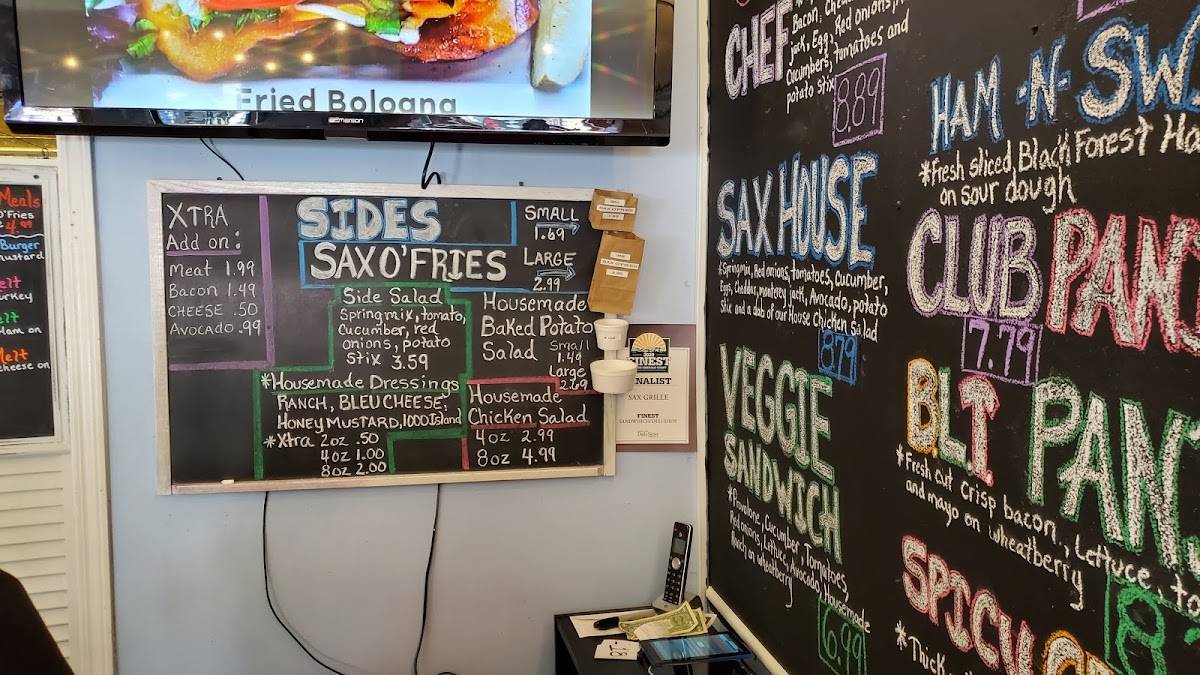 Fried Bologna
EMERSON
Meals
O'Fries
4.99
Burger
mustard
Melt
Turkey
Melt
Ham on
Melt
cheese on
XTRA
Add on:
Meat 1.99
Bacon 1.49
CHEESE .50
AVOCADO .99
SIDES
SAX O'FRIES
SMALL
1.69
LARGE
2.99
Side Salad
Spring mix, tomato,
cucumber, red
onions, potato
stix 3.59
Housemade
Baked Potato
Salad Small
1.49
Large
2.69
*Housemade Dressings
RANCH, BLEU CHEESE,
HONEY MUSTARD, 1000 Island
*Xtra 2oz .50
4oz 1.00
8oz 2.00
Housemade
Chicken Salad
4oz 2.99
8oz 4.99
FINEST
FINALIST
SAX GRILLE
FINEST
SANDWICH/DELI SHOP
CHEF
Bacon,
jack, Egg, Red onions,
Cucumbers, tomatoes and
potato stix
8.89
SAX HOUSE
*Spring mix, Red onions, tomatoes, cucumber,
Eggs, cheddar, monterey jack, Avocado, potato
Stix and a dab of our House Chicken Salad
8.79
VEGGIE
SANDWICH
*Provolone, Cucumber, Tomatoes,
Red onions, Lettuce, Avocado, Housemade
Ranch on wheatberry
6.99
HAM -N- SW
*Fresh sliced Black Forest Ha
on sour dough
CLUB PAN
7.79
B.L.T PAN
*Fresh cut crisp bacon, Lettuce, to
and mayo on wheatberry
8.
SPICY
*Thick